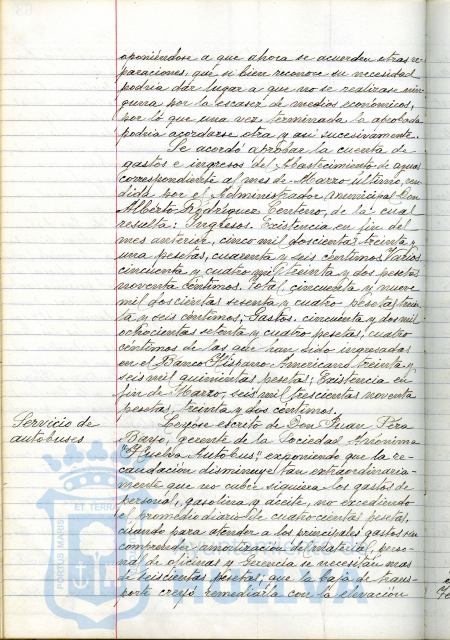 oponiéndose a que ahora se acuerden otras re-
paraciones, que si bien reconoce su necesidad
podria dar lugar a que no se realizase nin-
guna por la escasez de medios económicos,
por lo que una vez terminada la aprobada
podria acordarse otra y asi sucesivamente.
Se acordó aprobar la cuenta de
gastos e ingresos del Abastecimiento de aguas
correspondiente al mes de Marzo último, ren-
dida por el Administrador municipal Don
Alberto Rodriguez Centeno, de la cual
resulta: Ingresos. Existencia en fin del
mes anterior, cinco mil doscientas treinta y
una pesetas, cuarenta y seis céntimos. Varios
cincuenta y cuatro mil treinta y dos pesetas
noventa céntimos. Total, cincuenta y nueve
mil doscientas sesenta y cuatro pesetas trein-
ta y seis céntimos; Gastos. cincuenta y dos mil
ochocientas setenta y cuatro pesetas, cuatro
céntimos de las que han sido ingresadas
en el Banco Hispano Americano treinta y
seis mil quinientas pesetas; Existencia en
fin de Marzo, seis mil trescientas noventa
pesetas, treinta y dos céntimos.
Servicio de
autobuses
Leyóse escrito de Don Juan
Bayo, gerente de la Sociedad Anónima
"Huelva Autobus," exponiendo que la re-
caudación disminuye tan extraordinaria-
mente que no cubre siquiera los gastos de
personal, gasolina y aceite, no excediendo
el promedio diario de cuatrocientas pesetas,
cuando para atender a los principales gastos sin
comprender amortización de material, perso-
nal de oficinas y Gerencia se necesitan mas
de seiscientas pesetas; que la baja de trans-
porte creyó remediarla con la elevación
PORTUS MARIS
ET TERRA
HUELVA